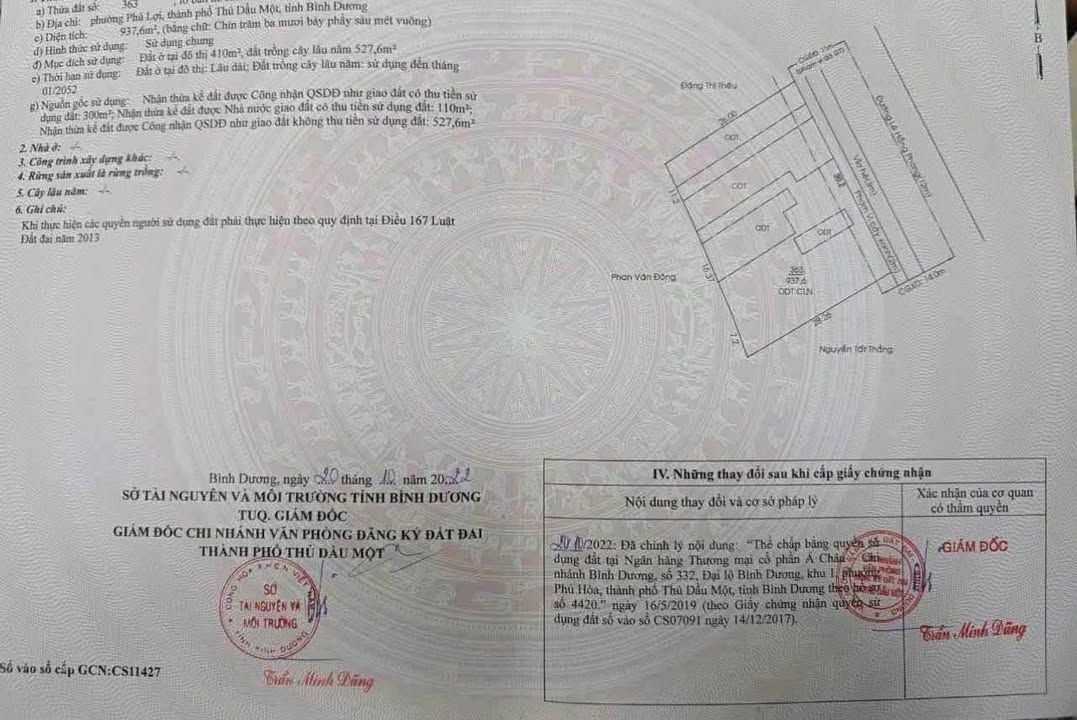 a) Thửa đất số: 363
b) Địa chỉ: phường Phú Lợi, thành phố Thủ Dầu Một, tỉnh Bình Dương
c) Diện tích: 937,6m², (bằng chữ: Chín trăm ba mươi bảy phẩy sáu mét vuông)
d) Hình thức sử dụng: Sử dụng chung
đ) Mục đích sử dụng: Đất ở tại đô thị 410m², đất trồng cây lâu năm 527,6m²
e) Thời hạn sử dụng: Đất ở tại đô thị: Lâu dài; Đất trồng cây lâu năm: sử dụng đến tháng
01/2052
g) Nguồn gốc sử dụng: Nhận thừa kế đất được Công nhận QSDĐ như giao đất có thu tiền sử
dụng đất: 300m²; Nhận thừa kế đất được Nhà nước giao đất có thu tiền sử dụng đất: 110m²;
Nhận thừa kế đất được Công nhận QSDĐ như giao đất không thu tiền sử dụng đất: 527,6m²
2. Nhà ở: -/-
3. Công trình xây dựng khác: -/-
4. Rừng sản xuất là rừng trồng: -/-
5. Cây lâu năm: -/-
6. Ghi chú:
Khi thực hiện các quyền người sử dụng đất phải thực hiện theo quy định tại Điều 167 Luật
Đất đai năm 2013
B
Đặng Thị Thêu
Đường Lê Hồng Phong(12m)
Vỉa hè(4m)
28.00
ODT
ODT
ODT
ODT
11.2
16.37
7.2
Phan Văn Đông
363
937,6
ODT,CLN
28.26
CGXD: 14.0m
Nguyễn Tất Thắng
Bình Dương, ngày 20 tháng 10 năm 2022
SỞ TÀI NGUYÊN VÀ MÔI TRƯỜNG TỈNH BÌNH DƯƠNG
TUQ. GIÁM ĐỐC
GIÁM ĐỐC CHI NHÁNH VĂN PHÒNG ĐĂNG KÝ ĐẤT ĐAI
THÀNH PHỐ THỦ DẦU MỘT
SỞ
TÀI NGUYÊN VÀ
MÔI TRƯỜNG
TỈNH BÌNH DƯƠNG
Trần Minh Dũng
Số vào sổ cấp GCN:CS11427
IV. Những thay đổi sau khi cấp giấy chứng nhận
Nội dung thay đổi và cơ sở pháp lý
Xác nhận của cơ quan
có thẩm quyền
20/10/2022: Đã chỉnh lý nội dung: "Thế chấp bằng quyền sử
dụng đất tại Ngân hàng Thương mại cổ phần Á Châu - Chi
nhánh Bình Dương, số 332, Đại lộ Bình Dương, khu 1, phường
Phú Hòa, thành phố Thủ Dầu Một, tỉnh Bình Dương theo hồ sơ
số 4420." ngày 16/5/2019 (theo Giấy chứng nhận quyền sử
dụng đất số vào sổ CS07091 ngày 14/12/2017).
GIÁM ĐỐC
Trần Minh Dũng